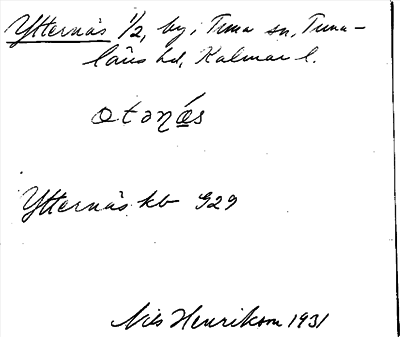 Ytternäs 1/2, by, i Tuna sn, Tuna-
läns hd, Kalmar l.
otənás
Ytternäs kb 929
Nils Henrikson 1931